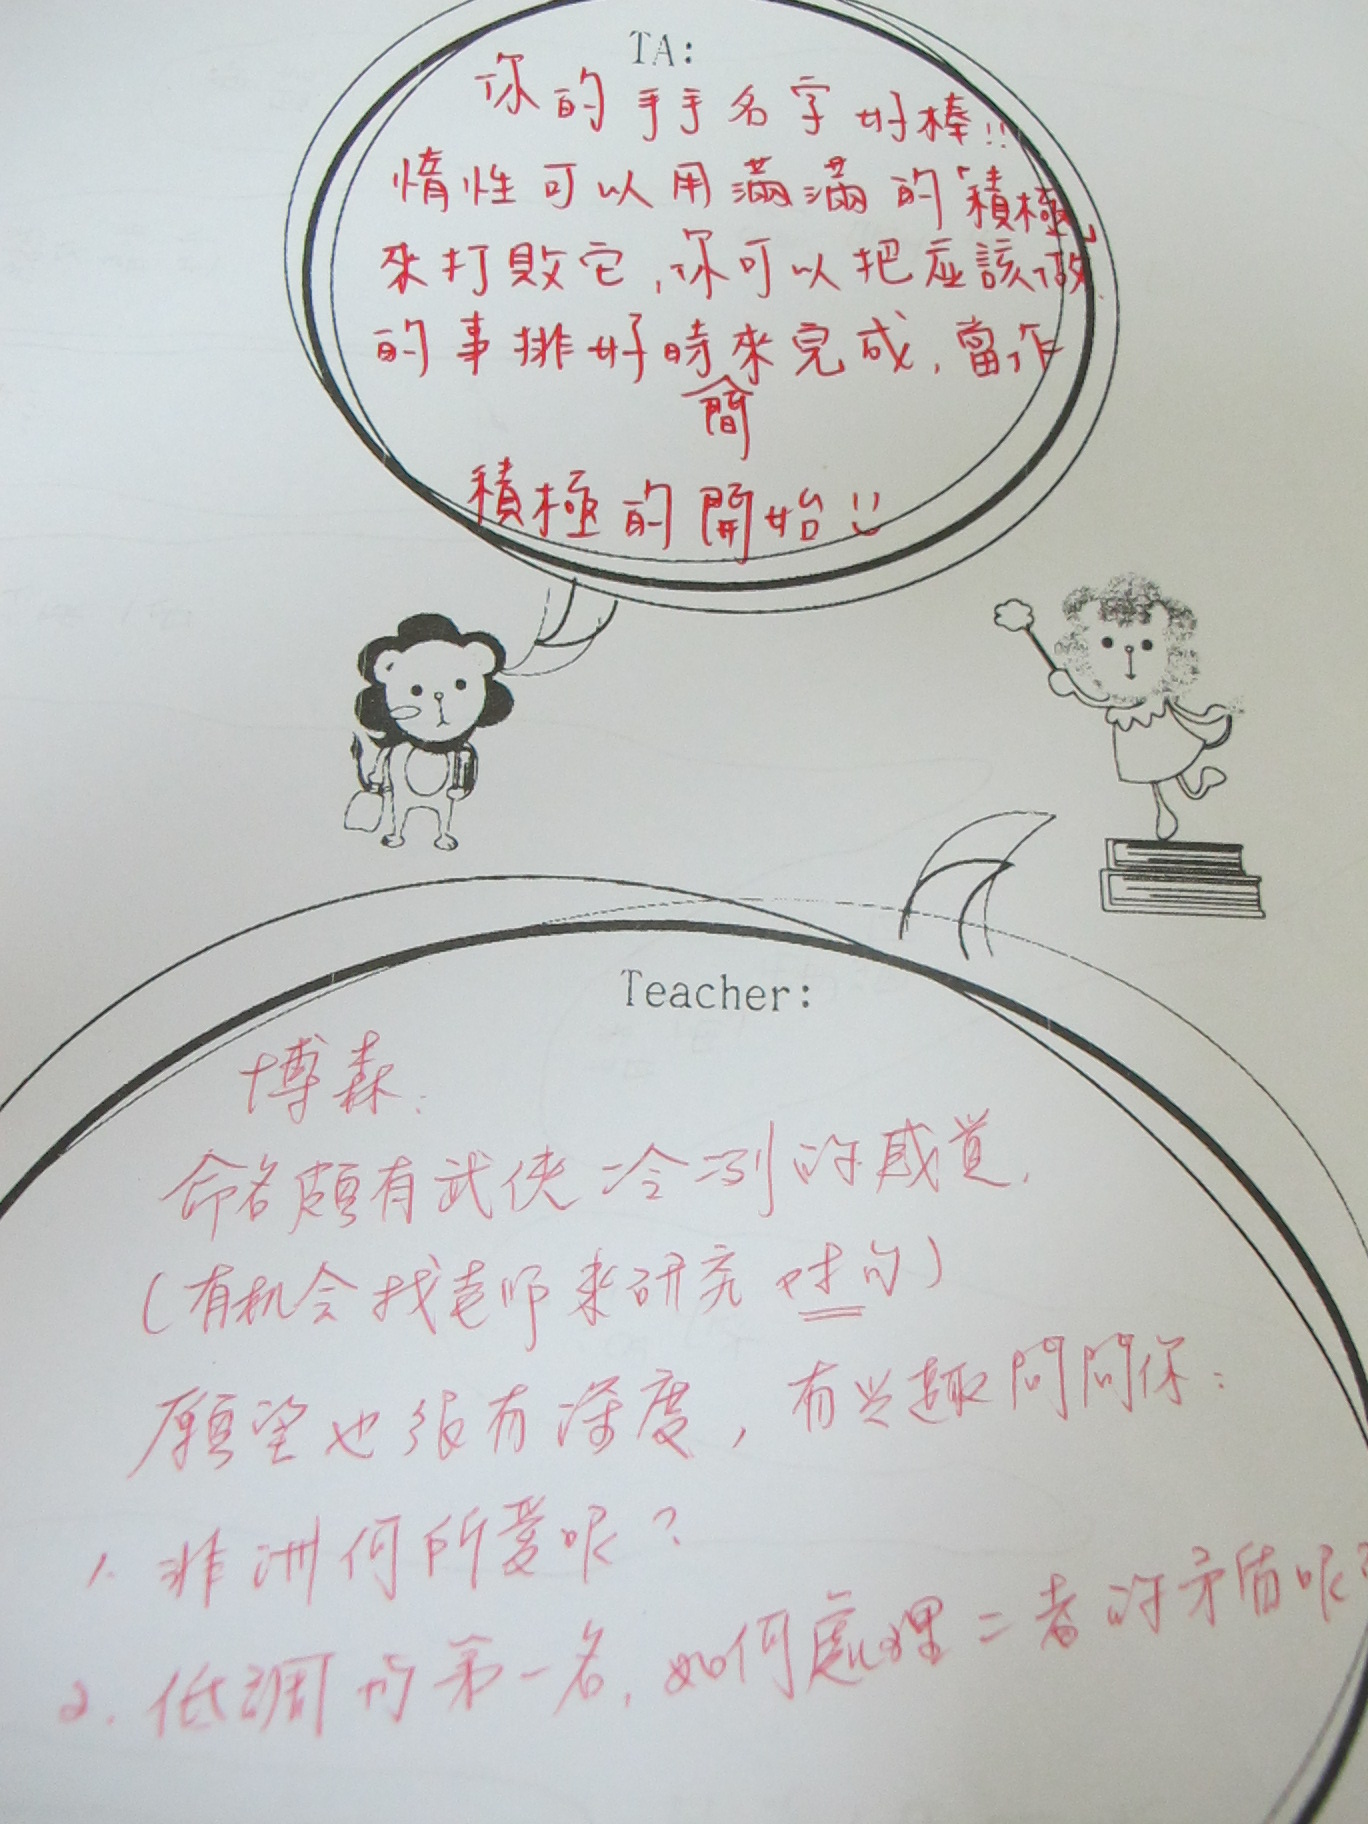 TA:
你的手手名字好棒!!
惰性可以用滿滿的「積極」
來打敗它,你可以把應該做
的事排好時來完成,當作
間
積極的開始!!
Teacher:
博森:
命名頗有武俠冷冽的感覚.
(有机会找老師來研究 对句)
願望也很有深度,有兴趣問問你:
1. 非洲何所愛呢?
2. 低調的第一名,如何處理二者的矛盾呢?